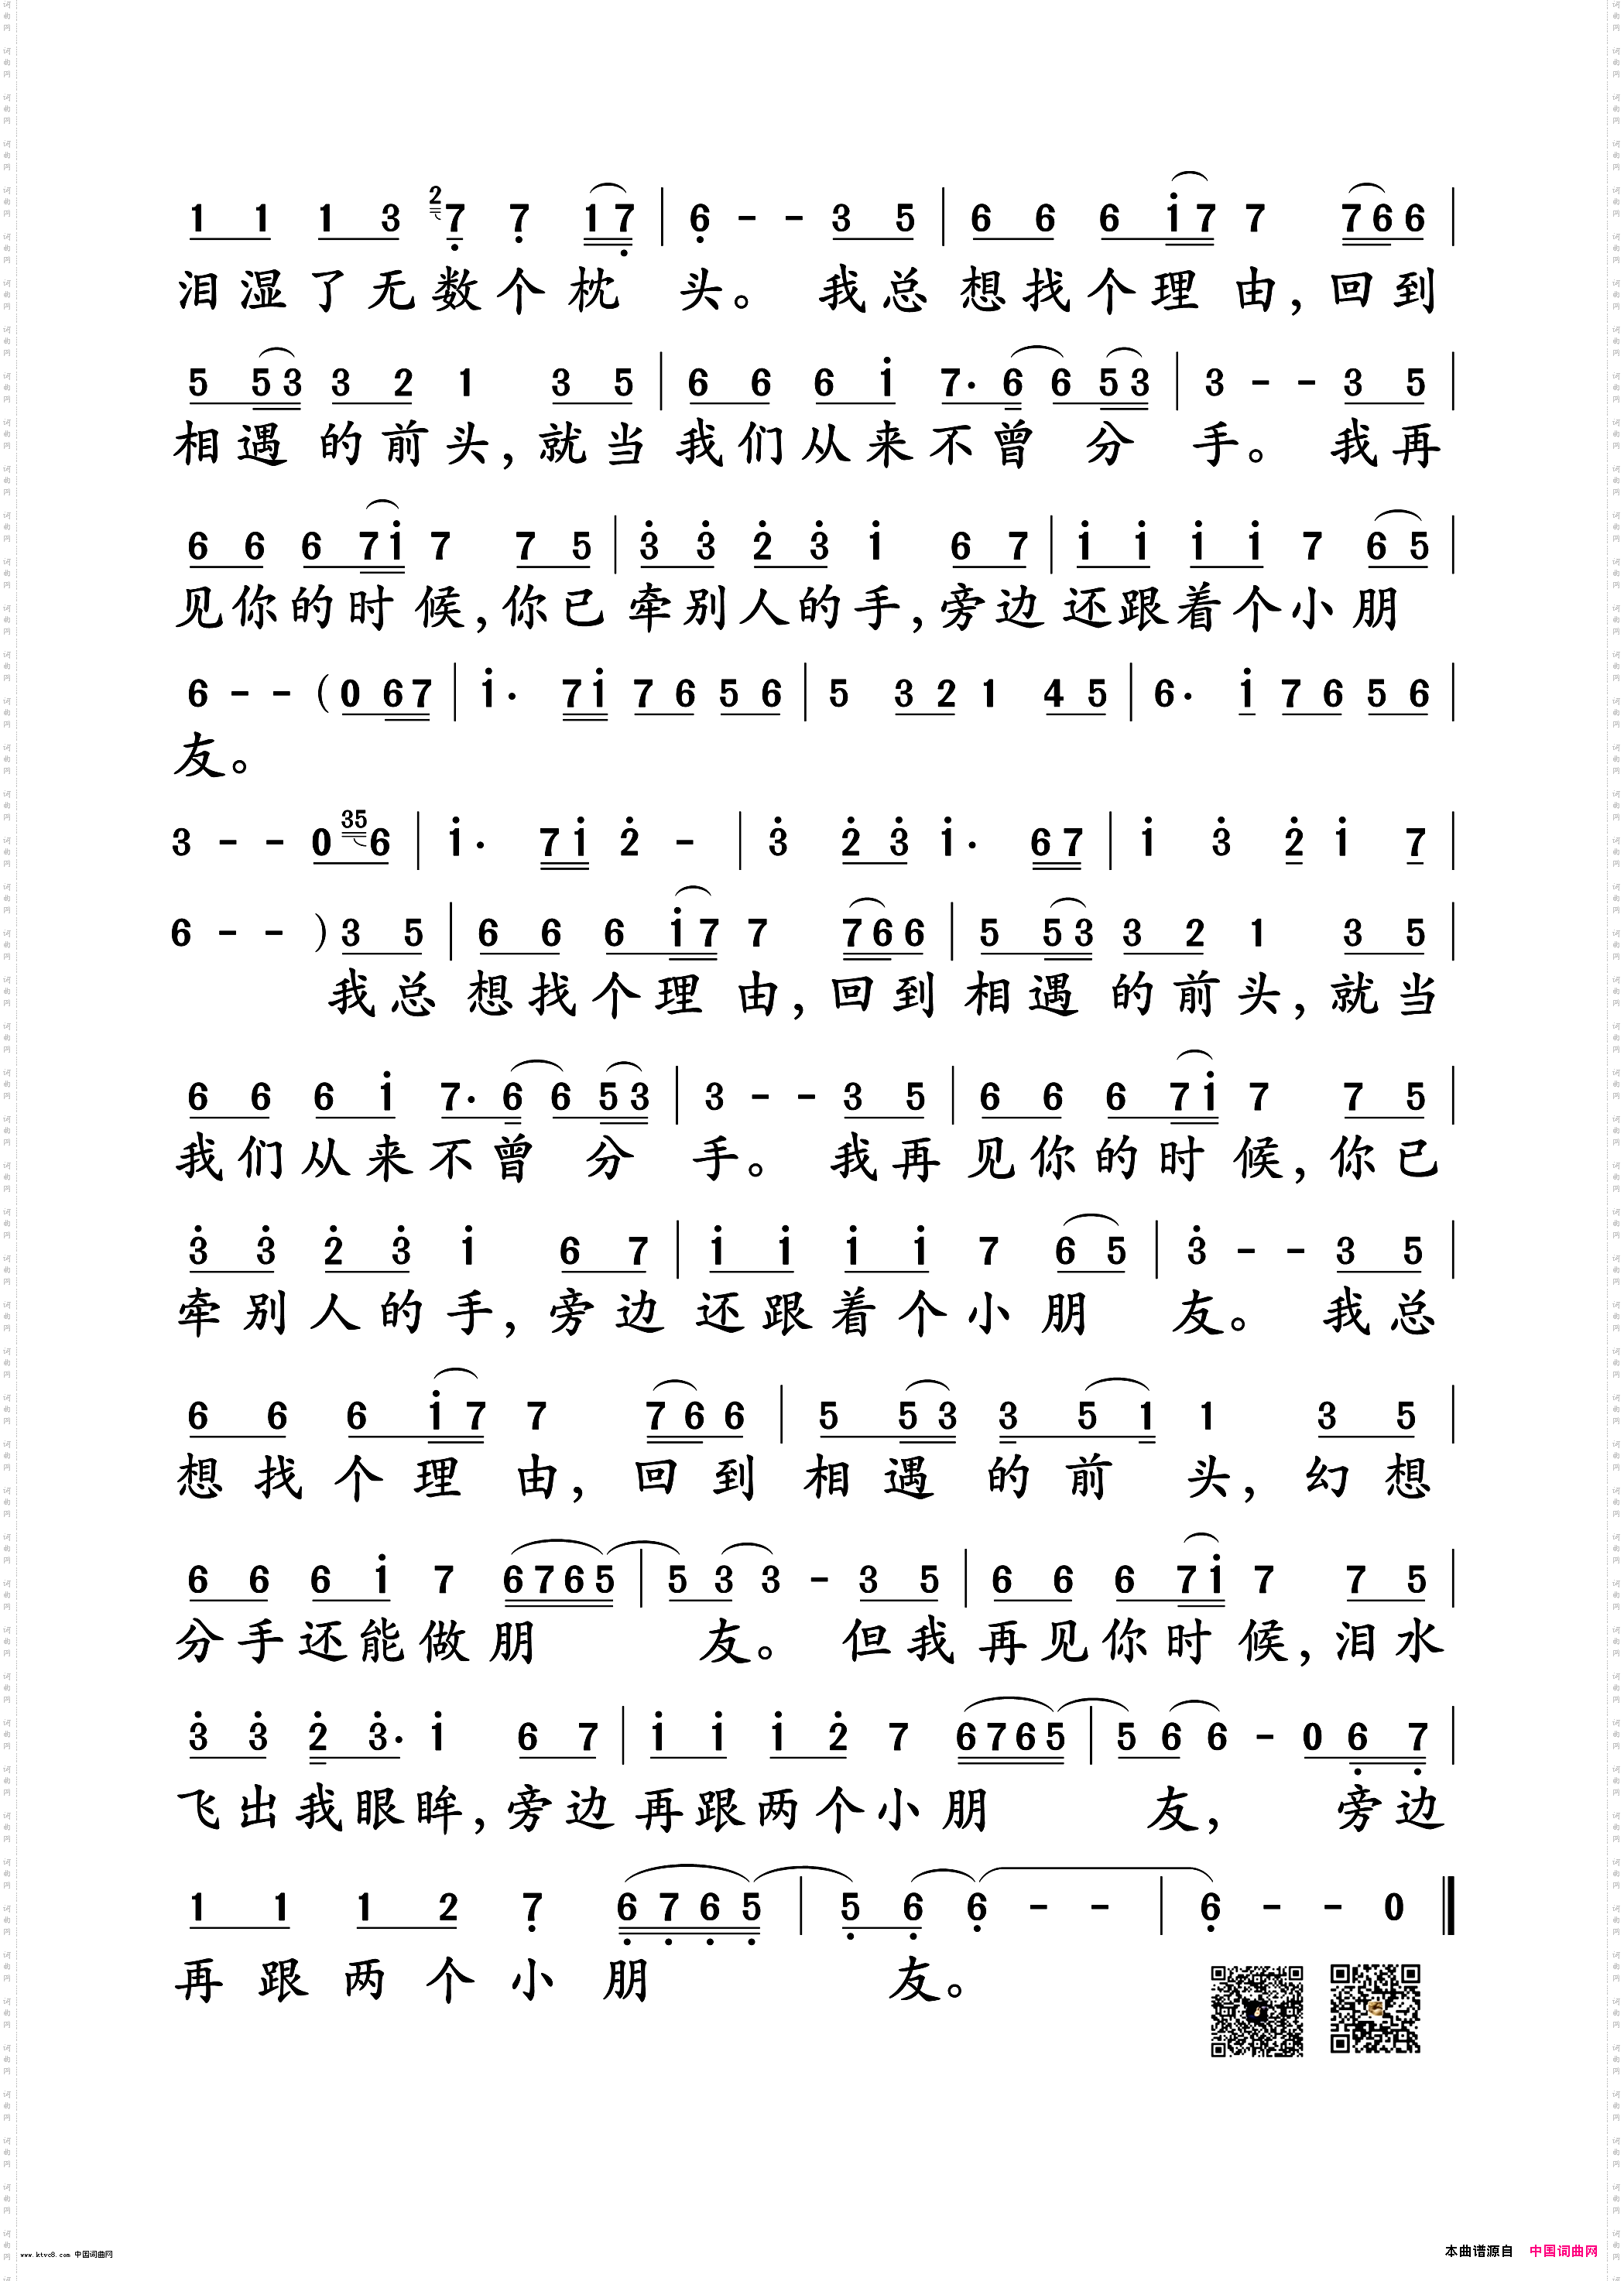 1 1 1 3 2 7 7 1 7 | 6 - - 3 5 | 6 6 6 1 7 7 7 6 6 |
泪湿了无数个枕 头。 我总 想找个理 由，回到
5 5 3 3 2 1 3 5 | 6 6 6 1 7· 6 6 5 3 | 3 - - 3 5 |
相遇 的前头，就当 我们从来不曾 分 手。 我再
6 6 6 7 1 7 7 5 | 3 3 2 3 1 6 7 | 1 1 1 1 7 6 5 |
见你的时 候，你已 牵别人的手，旁边 还跟着个小朋
6 - - (0 6 7 | 1· 7 1 7 6 5 6 | 5 3 2 1 4 5 | 6· 1 7 6 5 6 |
友。
3 - - 0 35 6 | 1· 7 1 2 - | 3 2 3 1· 6 7 | 1 3 2 1 7 |
6 - - ) 3 5 | 6 6 6 1 7 7 7 6 6 | 5 5 3 3 2 1 3 5 |
我总 想找个理 由，回到 相遇 的前头，就当
6 6 6 1 7· 6 6 5 3 | 3 - - 3 5 | 6 6 6 7 1 7 7 5 |
我们从来不曾 分 手。 我再 见你的时 候，你已
3 3 2 3 1 6 7 | 1 1 1 1 7 6 5 | 3 - - 3 5 |
牵别人的手，旁边 还跟着个小朋 友。 我总
6 6 6 1 7 7 7 6 6 | 5 5 3 3 5 1 1 3 5 |
想找个理 由，回到 相遇 的前 头，幻想
6 6 6 1 7 6 7 6 5 | 5 3 3 - 3 5 | 6 6 6 7 1 7 7 5 |
分手还能做朋 友。 但我 再见你时 候，泪水
3 3 2 3· 1 6 7 | 1 1 1 2 7 6 7 6 5 | 5 6 6 - 0 6 7 |
飞出我眼眸，旁边 再跟两个小朋 友， 旁边
1 1 1 2 7 6 7 6 5 | 5 6 6 - - | 6 - - 0 ‖
再跟两个小朋 友。
www.ktvc8.com 中国词曲网
本曲谱源自 中国词曲网